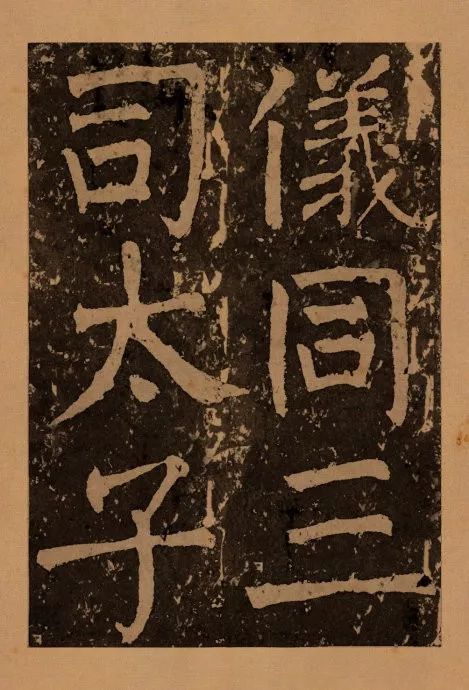 儀同三
司太子